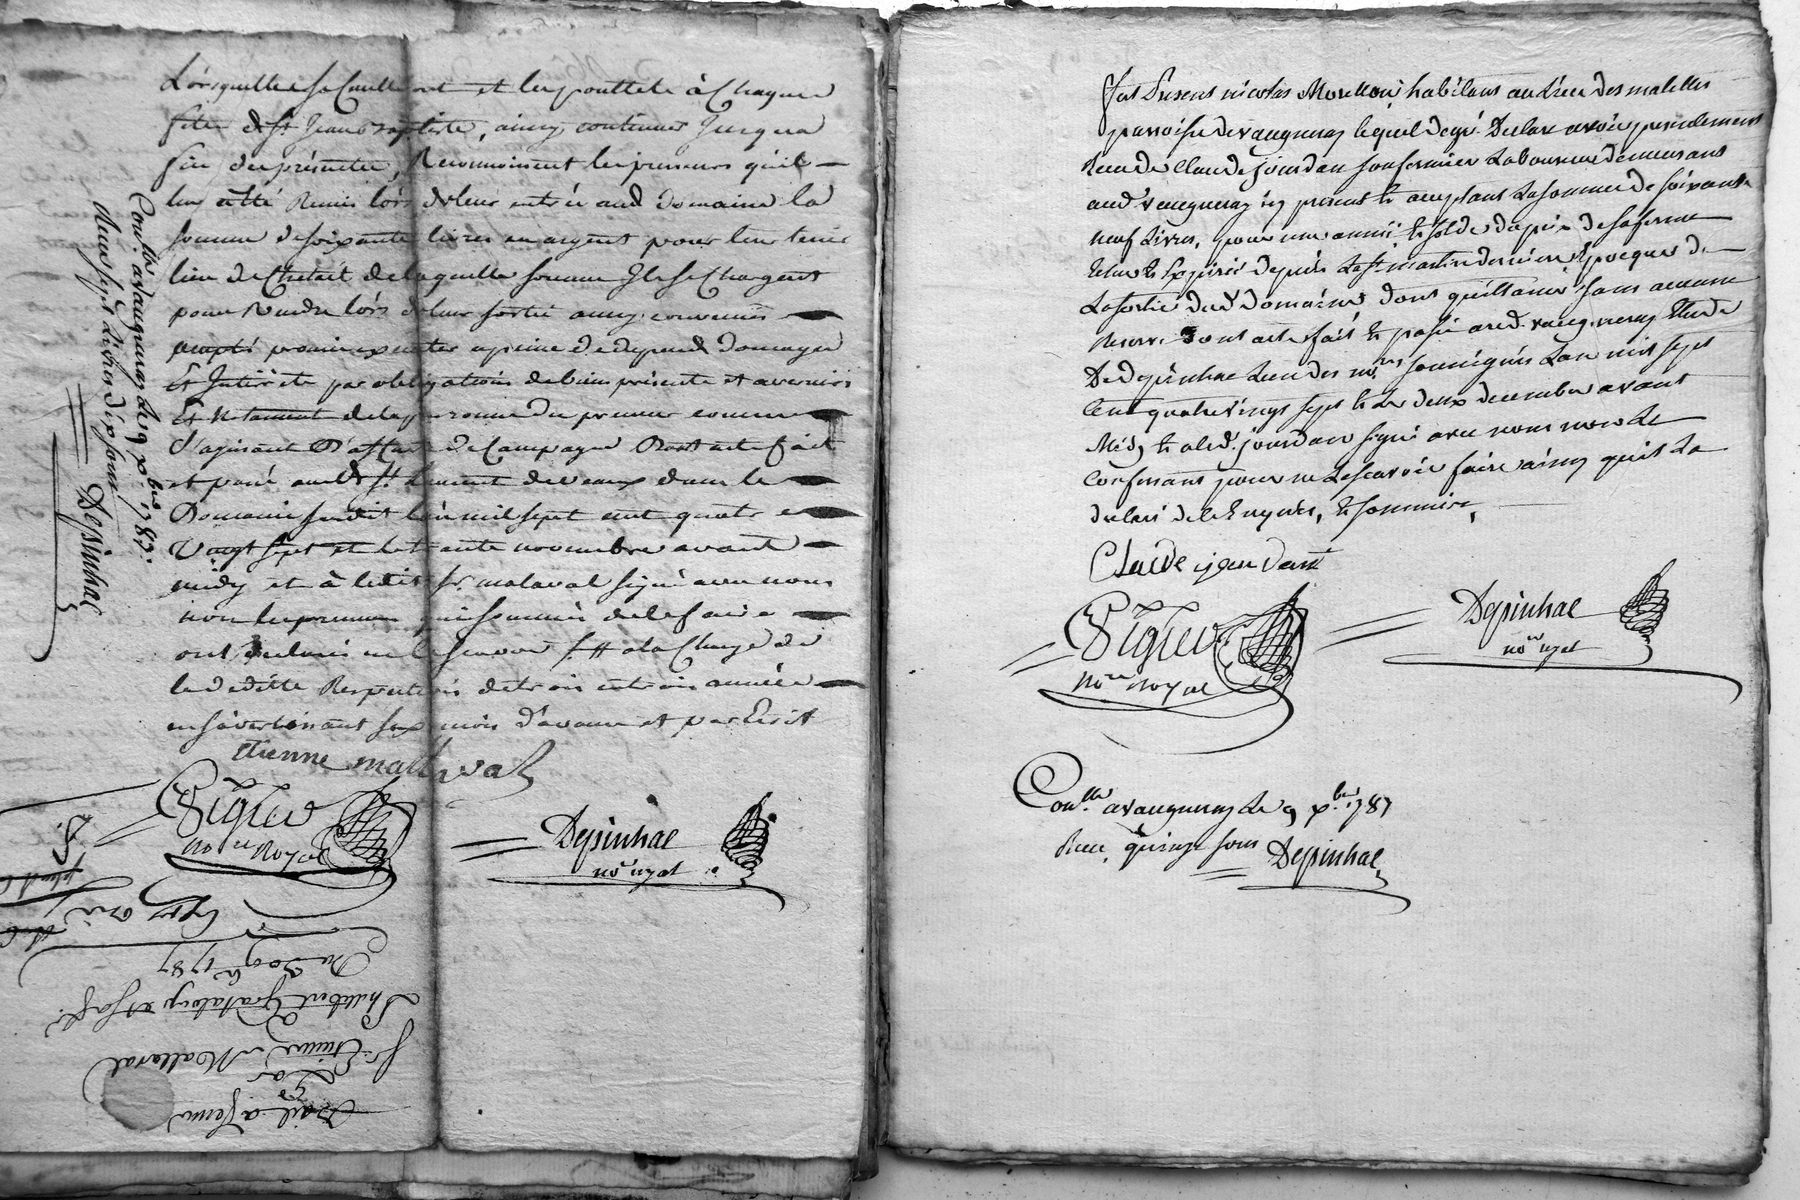 Lorsquelle se Cueilleront et les poullets à Chaque
fête de St Jean baptiste, ainsy continuer Jusqua
fin des présentes, Reconnoissent les preneurs quil
leur été Remis lors de leur entrée aud Domaine la
somme de soixante livres en argent pour leur tenir
lieu de Cheteil de laquelle somme Ils se Chargent
pour Rendre lors de leur sortie ainsy convenus
accepté promis exécuter a peine de depends Domages
Et Intérêts par obligations de biens présents et avenirs
Et Notament de la personne du preneur comme
s'agissant D'affaire de Campagne Dont acte fait
et passé aud St Laurent de vaux dans le
Domaine susdit l'an mil sept cent quatre
Vingt sept et le trente novembre avant
midy et à ledit Sr. malaval signé avec nous
non les preneurs qui sommés de le faire
ont déclaré ne le scavoir a la Charge de
le deditte Respective de trois en trois années
en s'avertissant six mois d'avance et par Ecrit
Etienne mallaval
Vigier
nore Royal
Depinhac
nore ryal
Conlle a vaugneray le 9 xbre 1787.
Reçu sept Livres dix sous Depinhac
Bail a ferme
Par
Sr. Etienne Mallaval
Du 30 9bre 1787
Fut Présent nicolas Mouillon habitant au Lieu des malettes
parroisse de vaugneray lequel de gré Declare avoir presentement
Receu de Claude jourdan son fermier Laboureur demeurant
aud. vaugneray icy present et acceptant La somme de soixante
neuf Livres, pour une année et solde du prix de sa ferme
Echue et Expirée depuis La St. martin derniere Epoque de
La sortie dud. Domaine, dont quittance sans aucune
Reserve Dont acte fait et passé aud. vaugneray Etude
De Depinhac L'un des nres soussignés L'an mil sept
Cent quatre vingt sept et Le deux decembre avant
Midy et a led. jourdan signé avec nous non Le
Confessant pour ne Le scavoir faire ainsy quil L'a
declaré de ce Enquis, et sommé.
Claude jourdant
Vigier
nore Royal
Depinhac
nore ryal
Conlle a vaugneray Le 9 xbre 1787
Recu quinze sous Depinhac